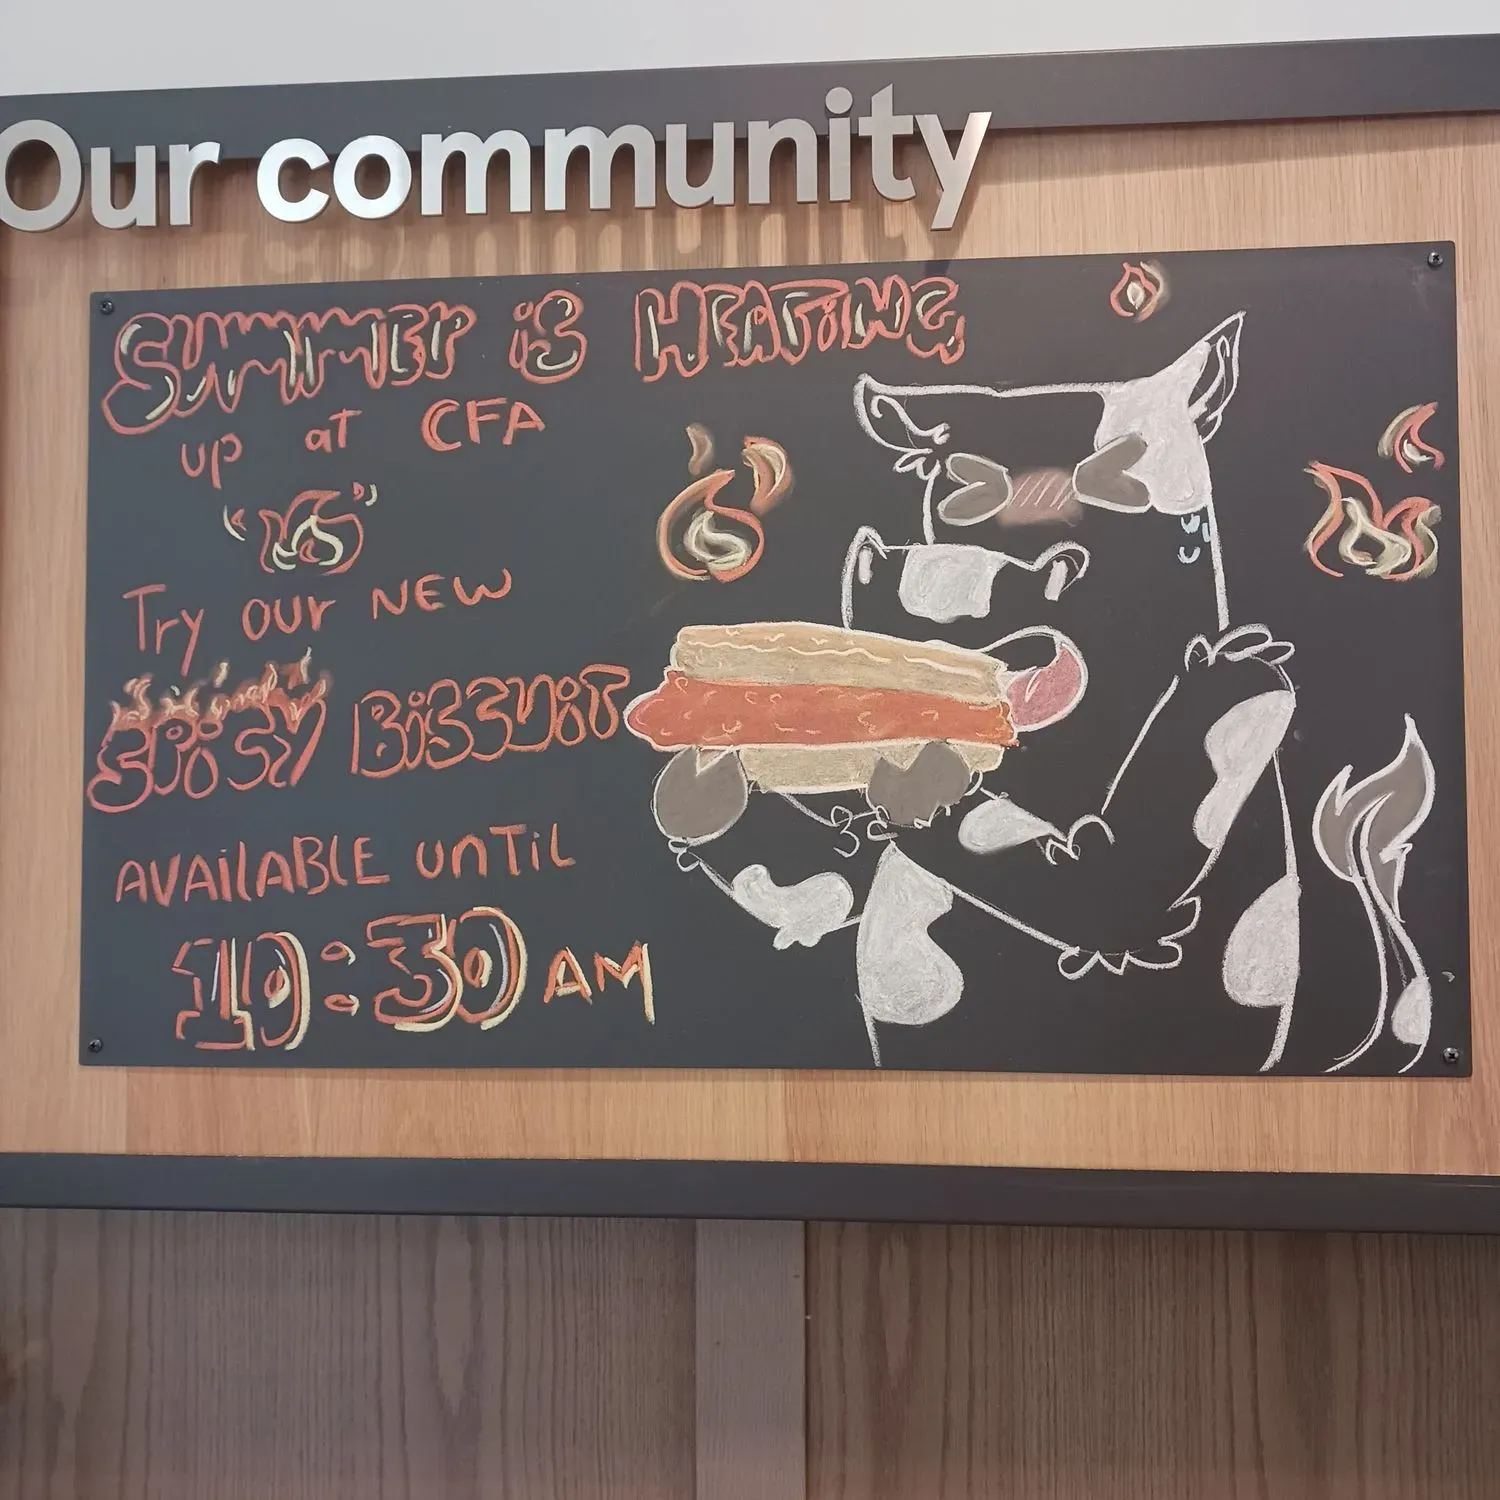 Our community
SUMMER iS HEATiNG
up at CFA
Try our NEW
SPiCY BiSCUiT
AVAilABLE UNTiL
10:30 AM